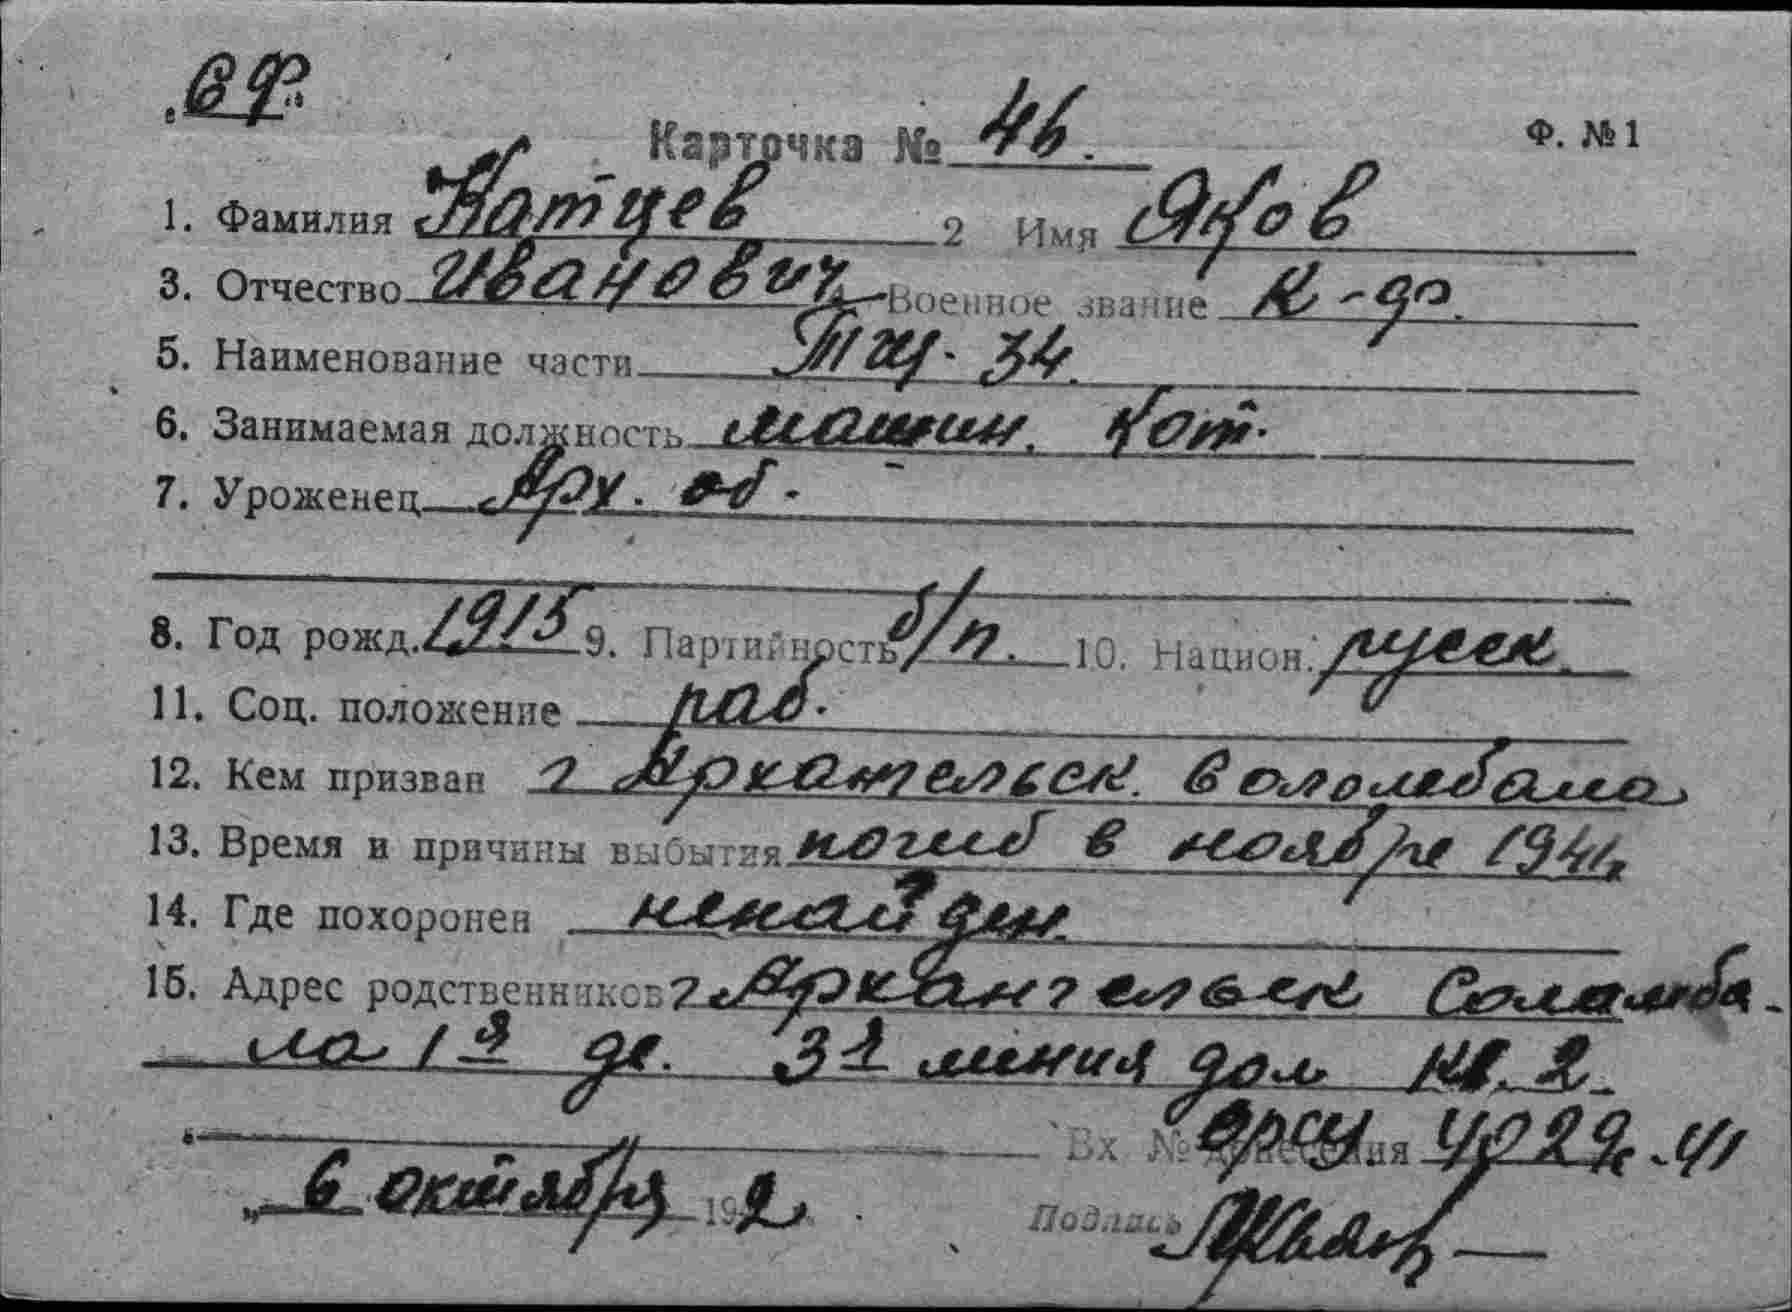 „СФ"
Карточка № 46. Ф. №1
1. Фамилия Катцев 2 Имя Яков
3. Отчество Иванович Военное звание К-фл.
5. Наименование части Тщ. 34.
6. Занимаемая должность машин. Кот.
7. Уроженец Арх. об.
8. Год рожд. 1915 9. Партийность б/п. 10. Национ. русск.
11. Соц. положение раб.
12. Кем призван г Архангельск.
13. Время и причины выбытия погиб в ноябре 1941
14. Где похоронен ненайден.
15. Адрес родственников г Архангельск Соламба-
ла 1я де. 3я линия дом кв. 2.
Вх № донесения 4029с-41
„ 6 октября 19 2
Подпись